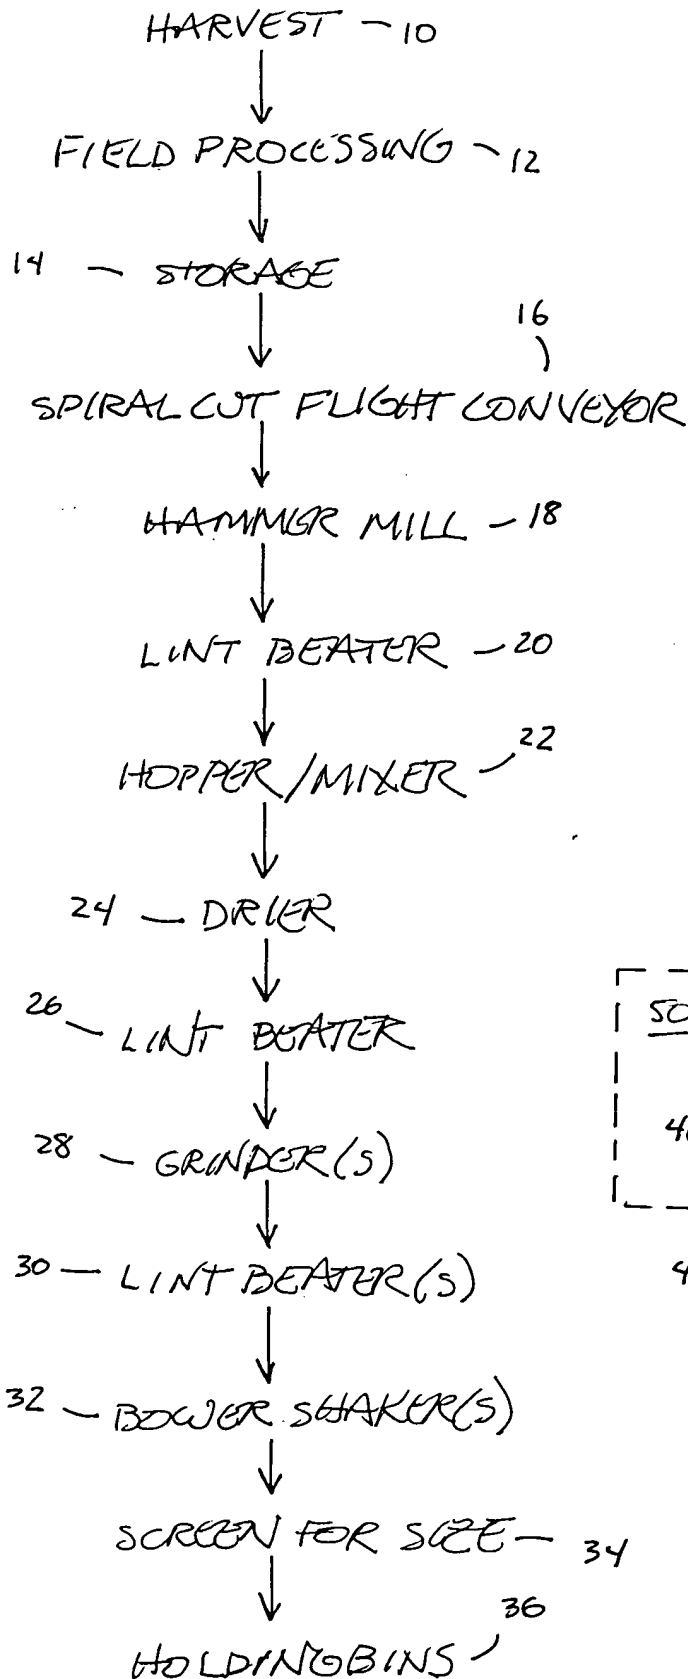 HARVEST - 10
FIELD PROCESSING ~ 12
14 - STORAGE
16
SPIRAL CUT FLIGHT CONVEYOR
HAMMER MILL - 18
LINT BEATER - 20
HOPPER/MIXER - 22
24 - DRIER
26 ~ LINT BEATER
50
28 - GRINDER(S)
30 - LINT BEATER(S)
32 - BOWER SHAKER(S)
SCREEN FOR SIZE - 34
HOLDING BINS - 36